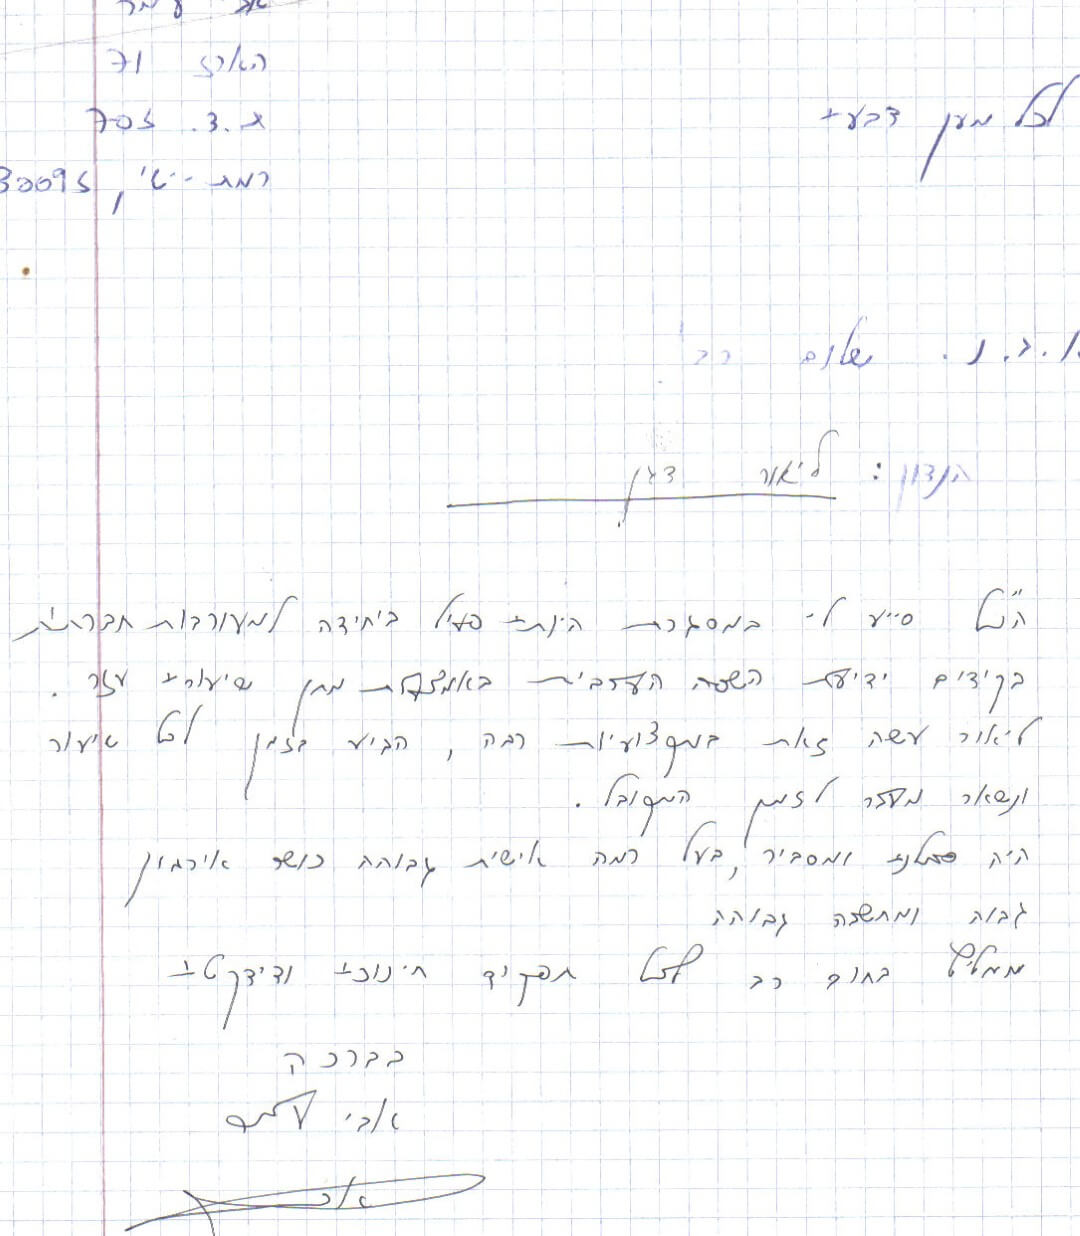 הארז 71
ת.ד. 2057
רמת ישי, 30095
לכל מען דבעי
א.ג.נ. שלום רב
הנדון: ליאור דגן
הנ"ל סייע לי במסגרת היותו פעיל ביחידה למעורבות חברתית
בקידום ידיעת השפה הערבית באמצעות מתן שיעורי עזר.
ליאור עשה זאת במקצועיות רבה, הגיע בזמן לכל שיעור
ונשאר מעבר לזמן המקובל.
היה סבלני ומסביר, בעל רמה אישית גבוהה כושר אירגון
גבוה ומחשבה גבוהה
ממליץ בחום רב לכל תפקיד חינוכי ודידקטי
בברכה
אבי
אבי